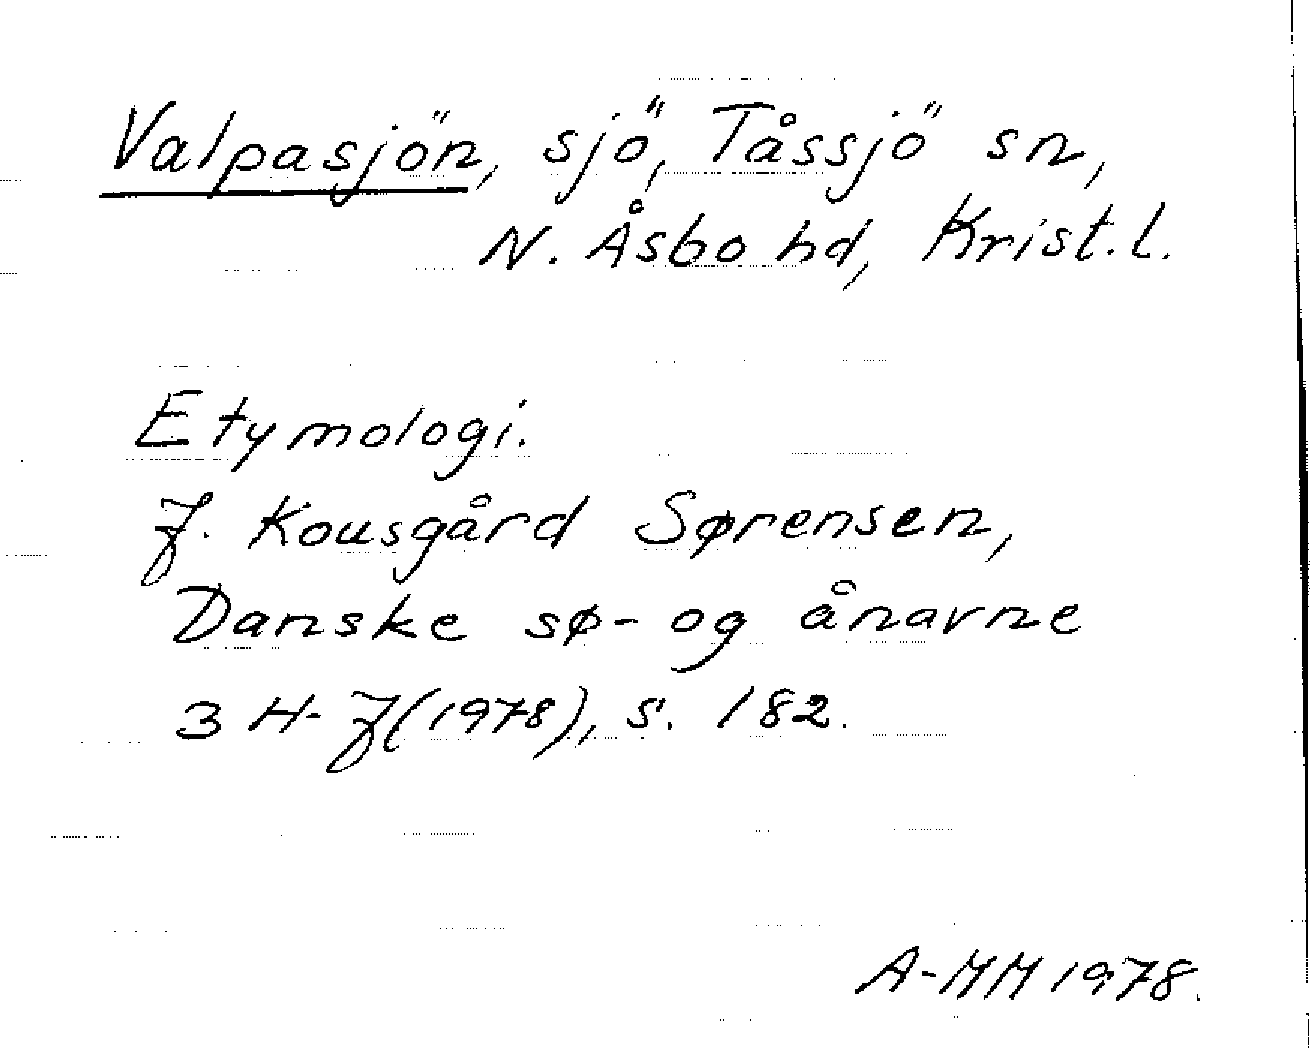 Valpasjön, sjö, Tåssjö sn,
N. Åsbo hd, Krist. l.
Etymologi.
J. Kousgård Sørensen,
Danske sø- og ånavne
3 H-J (1978), s. 182.
A-MM 1978.